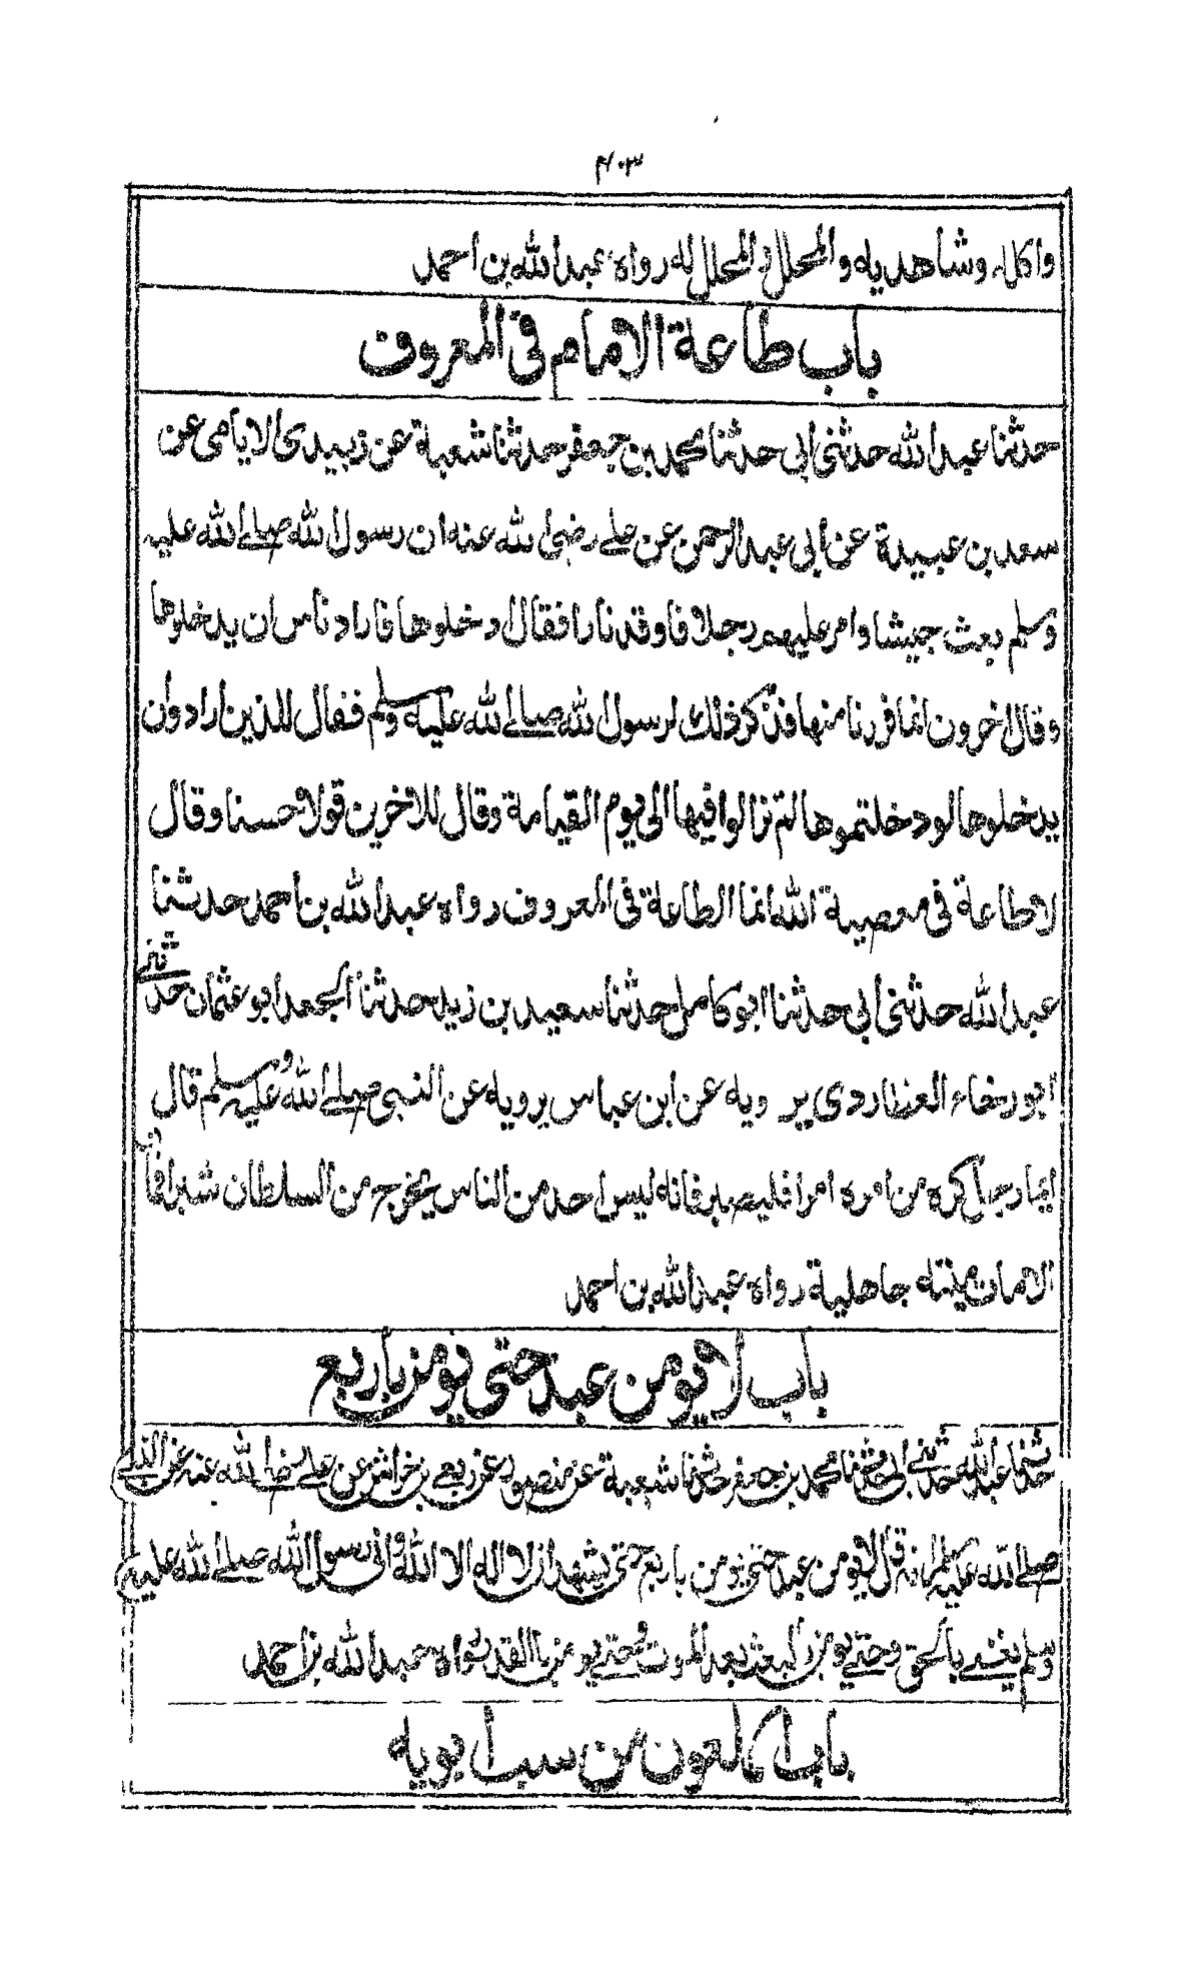 ٢٠٣
واكله وشاهديه والمحلل والمحلل له رواه عبد الله بن احمد
باب طاعة الامام فى المعروف
حدثنا عبد الله حدثنى أبى حدثنا محمد بن جعفر حدثنا شعبة عن زبيدى الايامى عن
سعد بن عبيدة عن أبى عبد الرحمن عن على رضى الله عنه ان رسول الله صلى الله عليه
وسلم بعث جيشا وامر عليهم رجلا فاوقد نارا فقال ادخلوها فاراد ناس ان يدخلوها
وقال اخرون انما فررنا منها فذكر ذلك لرسول الله صلى الله عليه وسلم فقال للذين ارادوان
يدخلوها لو دخلتموها لم تزالوا فيها الى يوم القيامة وقال للاخرين قولا حسنا وقال
لا طاعة فى معصية الله انما الطاعة فى المعروف رواه عبد الله بن احمد حدثنا
عبد الله حدثنى أبى حدثنا ابو كامل حدثنا سعيد بن زيد حدثنا الجعد ابو عثمان حدثنى
ابو رجاء العطاردى يرويه عن ابن عباس يرويه عن النبى صلى الله عليه وسلم قال
ايما رجل كره من امره امرا فليصبر فانه ليس احد من الناس يخرج من السلطان شبرا فمات
الامات ميتة جاهلية رواه عبد الله بن احمد
باب لا يومن عبد حتى يومن باربع
حدثنا عبد الله حدثنى ابى حدثنا محمد بن جعفر حدثنا شعبة عن منصور عن ربعى بن خراش عن على رضى الله عنه عن النبى
صلى الله عليه وسلم انه قال لا يومن عبد حتى يومن باربع حتى يشهد ان لا اله الا الله وانى رسول الله صلى الله عليه
وسلم بعثنى بالحق وحتى يومن بالبعث بعد الموت وحتى يومن بالقدر رواه عبد الله بن احمد
باب ملعون من سب أبويه